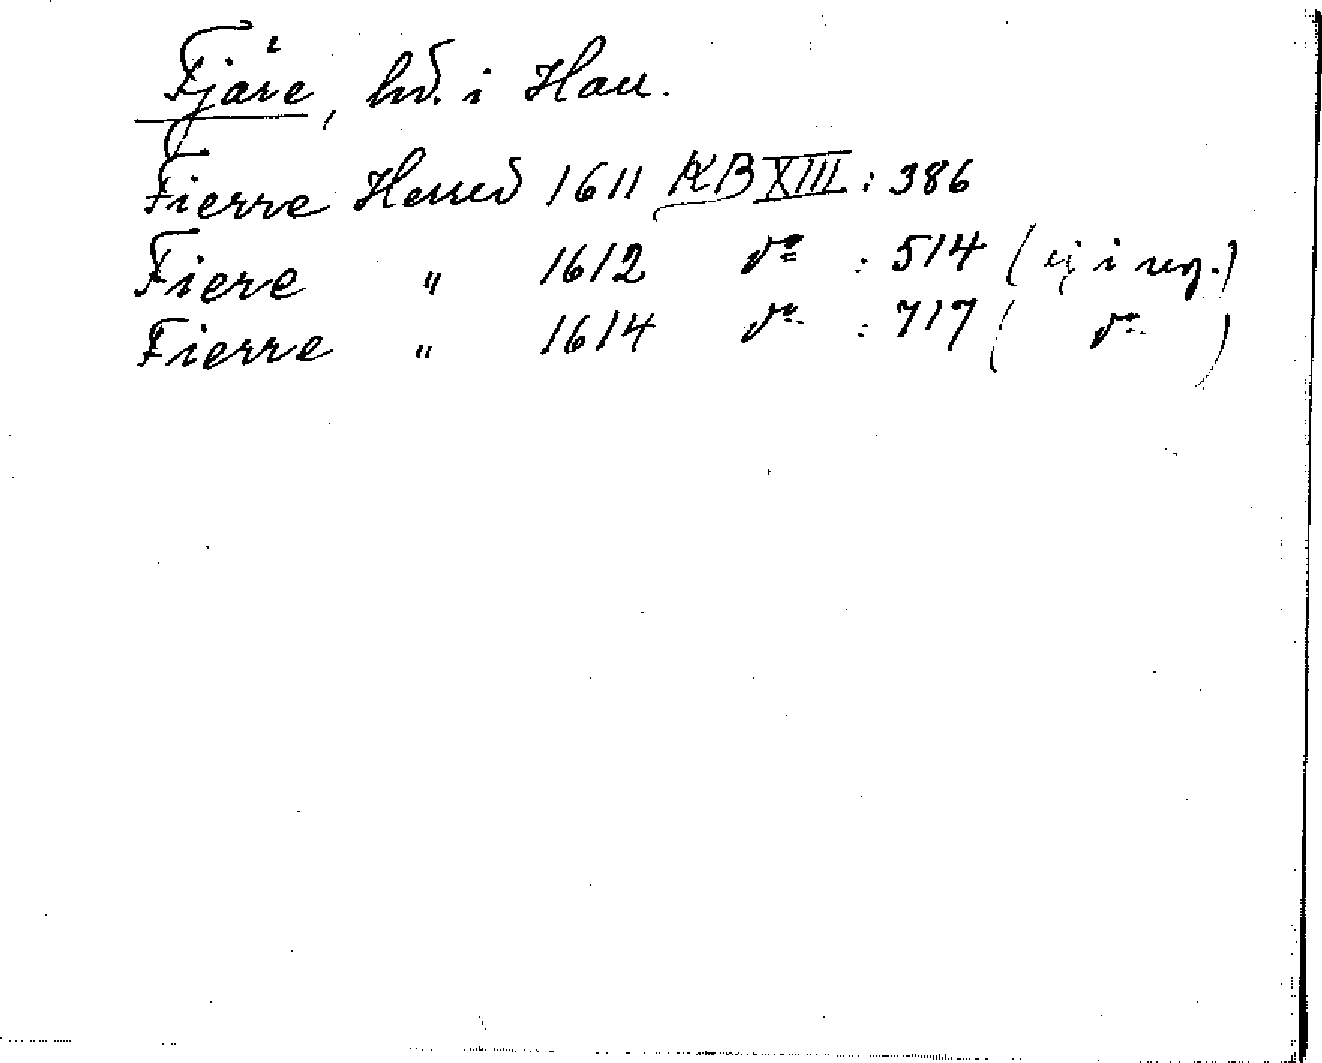 Fjäre, hd. i Hall.
Fierre Herred 1611 KB XIII : 386
Fiere " 1612 do : 514 (ej i reg.)
Fierre " 1614 do : 717 ( do )